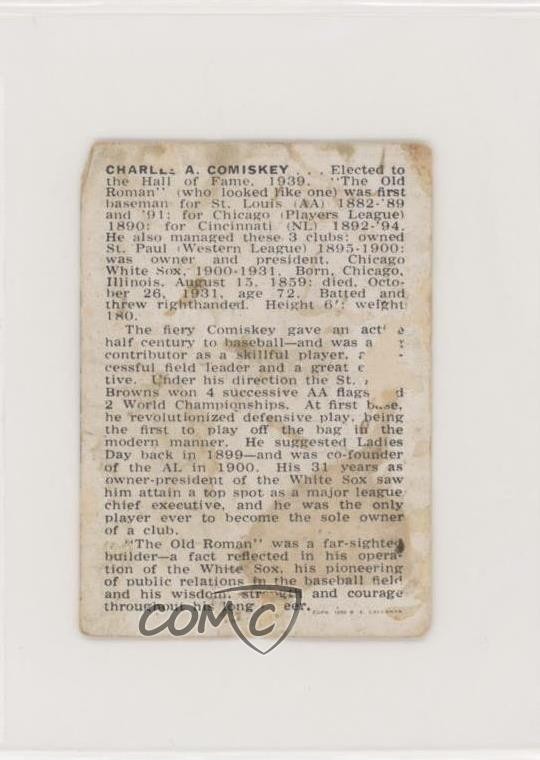 CHARLES A. COMISKEY . . . Elected to
the Hall of Fame, 1939. "The Old
Roman" (who looked like one) was first
baseman for St. Louis (AA) 1882-'89
and '91; for Chicago (Players League)
1890; for Cincinnati (NL) 1892-'94.
He also managed these 3 clubs; owned
St. Paul (Western League) 1895-1900;
was owner and president, Chicago
White Sox, 1900-1931. Born, Chicago,
Illinois, August 15, 1859; died, Octo-
ber 26, 1931, age 72. Batted and
threw righthanded. Height 6'; weight
180.
The fiery Comiskey gave an
half century to baseball—and was a
contributor as a skillful player,
cessful field leader and a great
tive. Under his direction the St.
Browns won 4 successive AA flags
2 World Championships. At first base,
he revolutionized defensive play, being
the first to play off the bag in the
modern manner. He suggested Ladies
Day back in 1899—and was co-founder
of the AL in 1900. His 31 years as
owner-president of the White Sox saw
him attain a top spot as a major league
chief executive, and he was the only
player ever to become the sole owner
of a club.
"The Old Roman" was a far-sighted
builder—a fact reflected in his opera-
tion of the White Sox, his pioneering
of public relations in the baseball field
and his wisdom, strength and courage
throughout his long
COPR. 1950 B. E. CALLAHAN
COMC